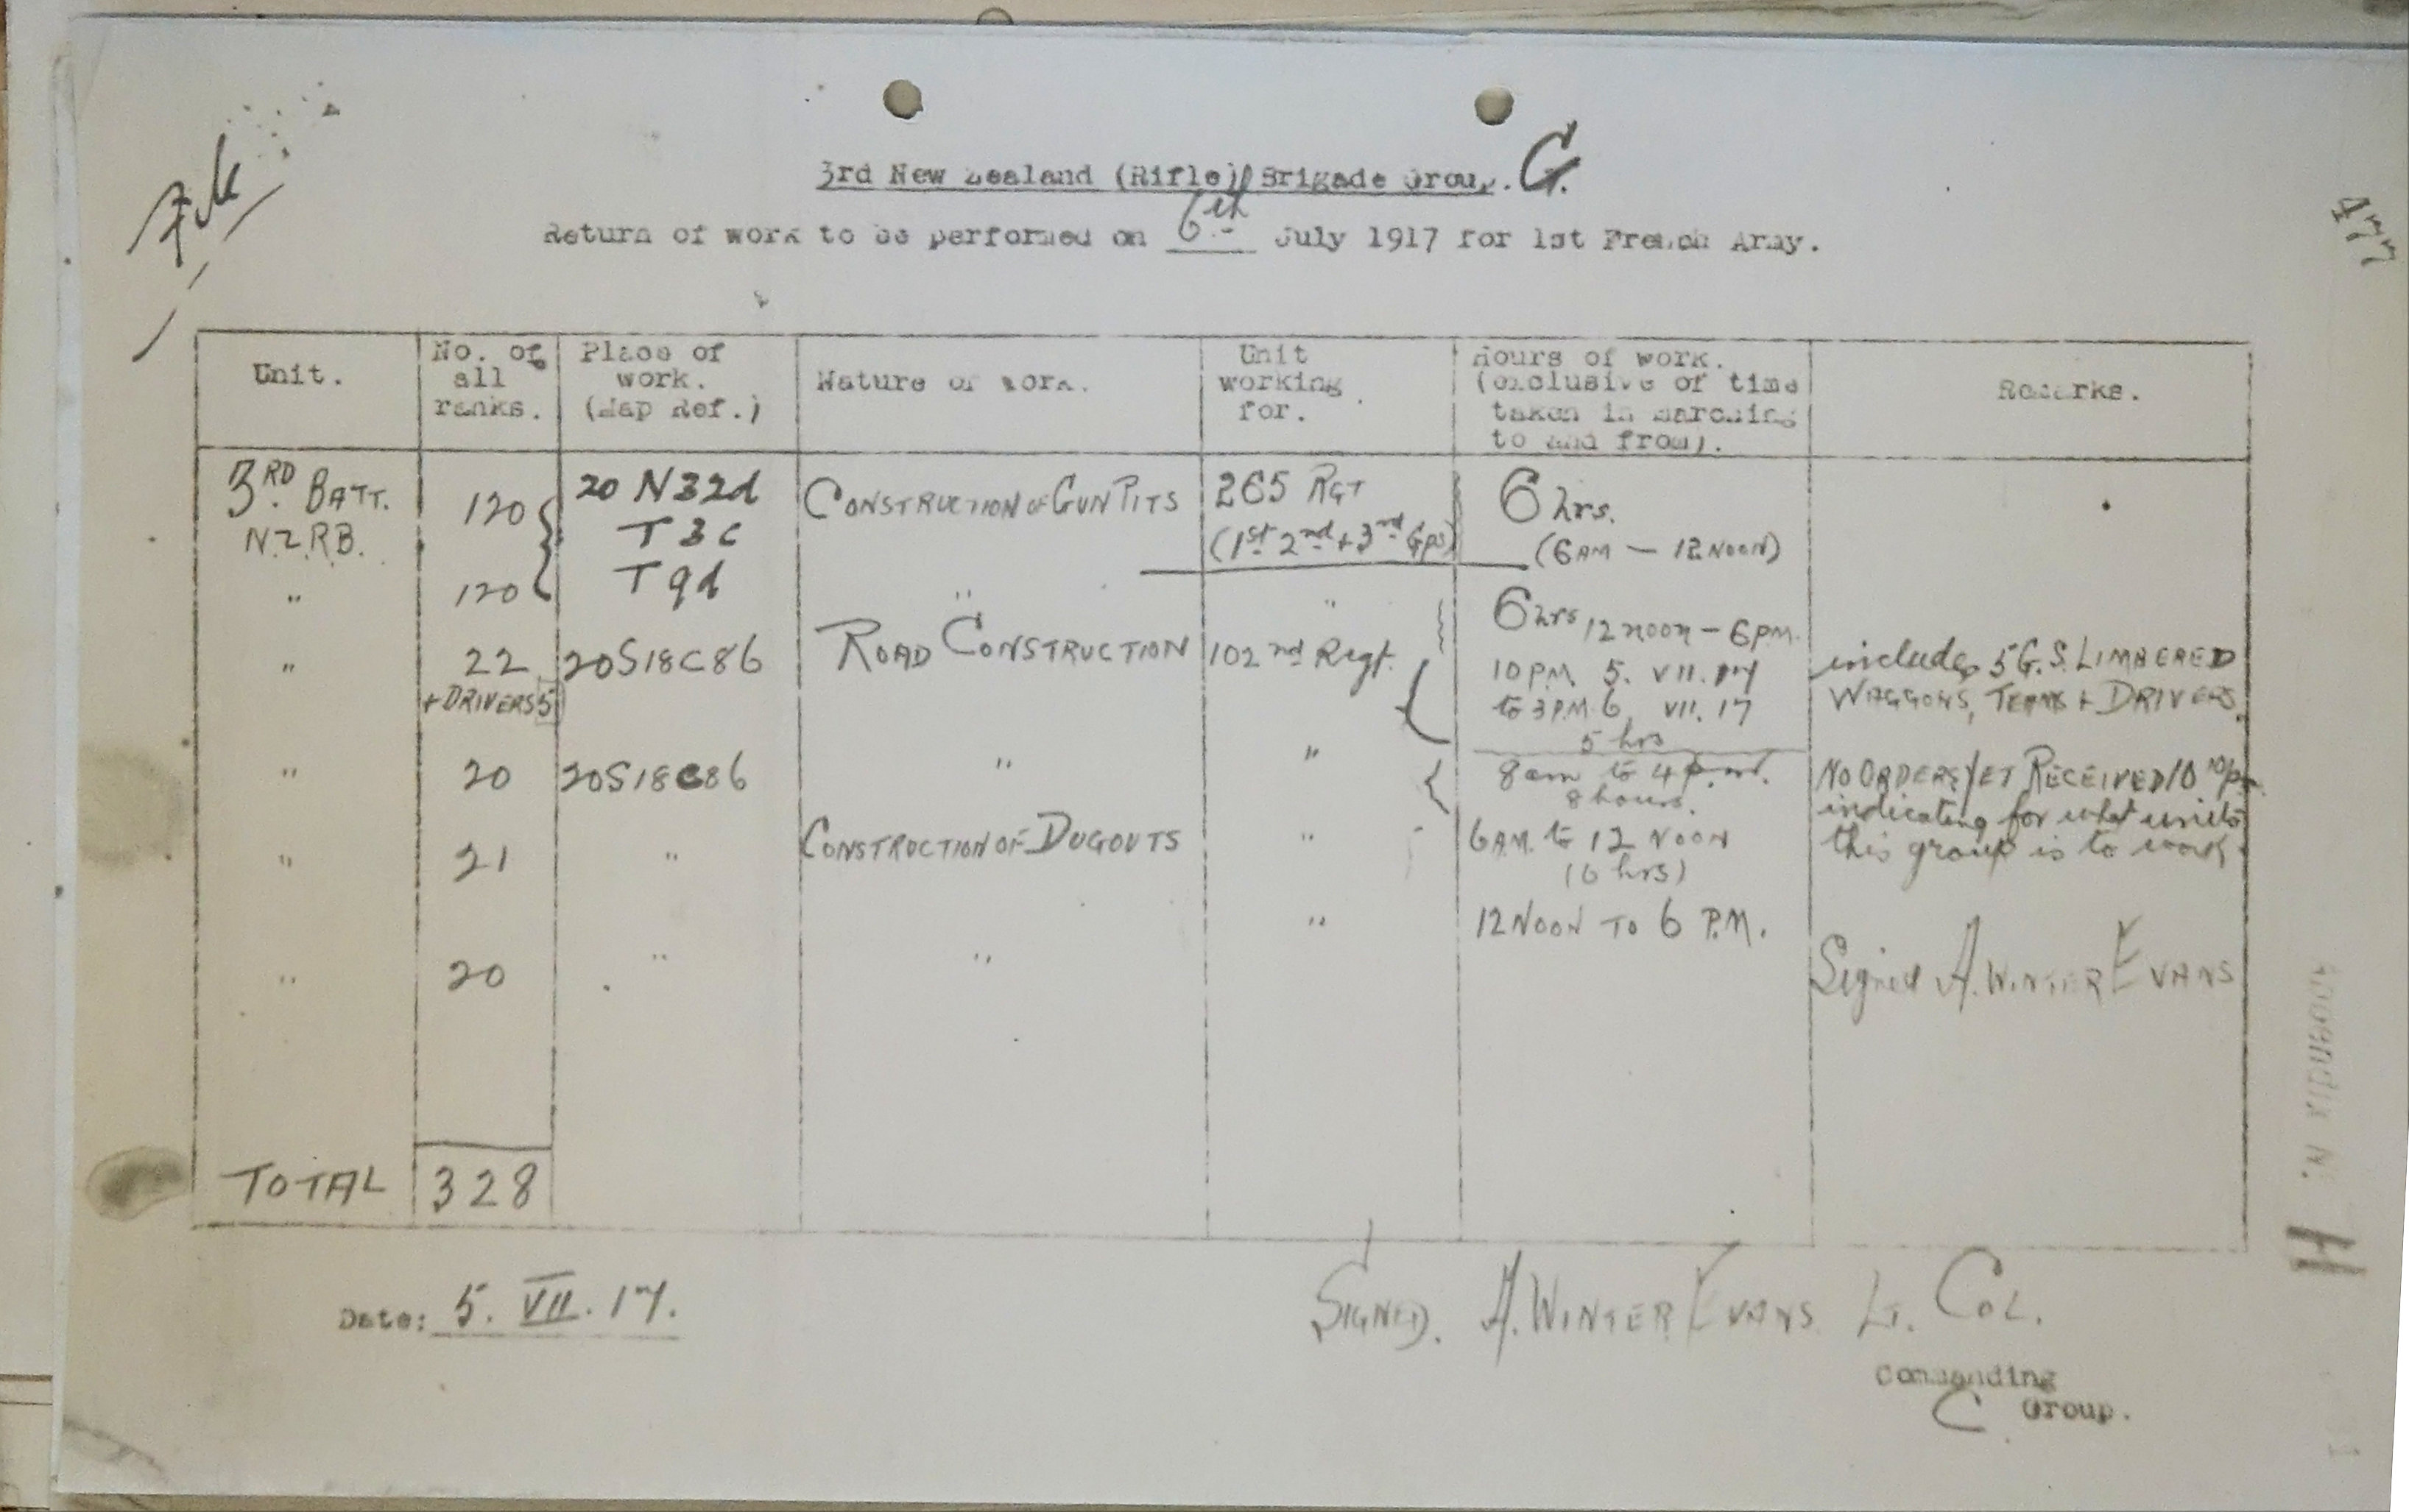 File
3rd New Zealand (Rifle) Brigade Group. G.
Return of work to be performed on 6th July 1917 for 1st French Army.
477
Unit.
No. of
all
ranks.
Place of
work.
(Map Ref.)
Nature of work.
Unit
working
for.
Hours of work.
(exclusive of time
taken in marching
to and from).
Remarks.
3RD BATT.
N.Z.R.B.
120
20 N32d
T 3 c
CONSTRUCTION OF GUN PITS
265 RGT
(1st 2nd + 3rd Gps)
6 hrs.
(6 AM — 12 NOON)
" 120 T 9d " " 6 hrs 12 noon - 6 PM.
" 22
+ DRIVERS 5
20S18C86
ROAD CONSTRUCTION
102nd Regt.
10 PM. 5. VII. 17
to 3 P.M. 6. VII. 17
5 hrs
includes 5 G.S. LIMBERED
WAGGONS, TEAMS + DRIVERS.
" 20 20S18C86 " "
8 am to 4 p.m.
8 hours.
NO ORDERS YET RECEIVED 10
indicating for what units
this group is to work.
" 21 " CONSTRUCTION OF DUGOUTS "
6 A.M. to 12 NOON
(6 hrs)
" 20 " " " 12 NOON TO 6 P.M.
Signed A. WINTER EVANS
TOTAL 328
Date: 5. VII. 17.
SIGNED. A. WINTER EVANS Lt. COL.
Commanding
C Group.
Appendix N.
H